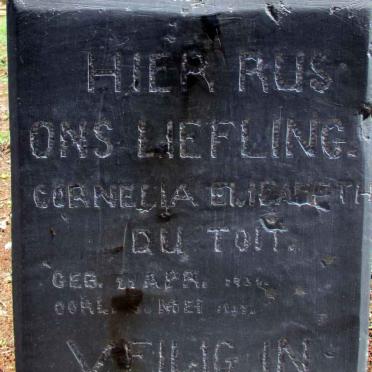 HIER RUS
ONS LIEFLING.
CORNELIA ELIZABETH
DU TOIT.
GEB. APR.
OORL. MEI
VEILIG IN